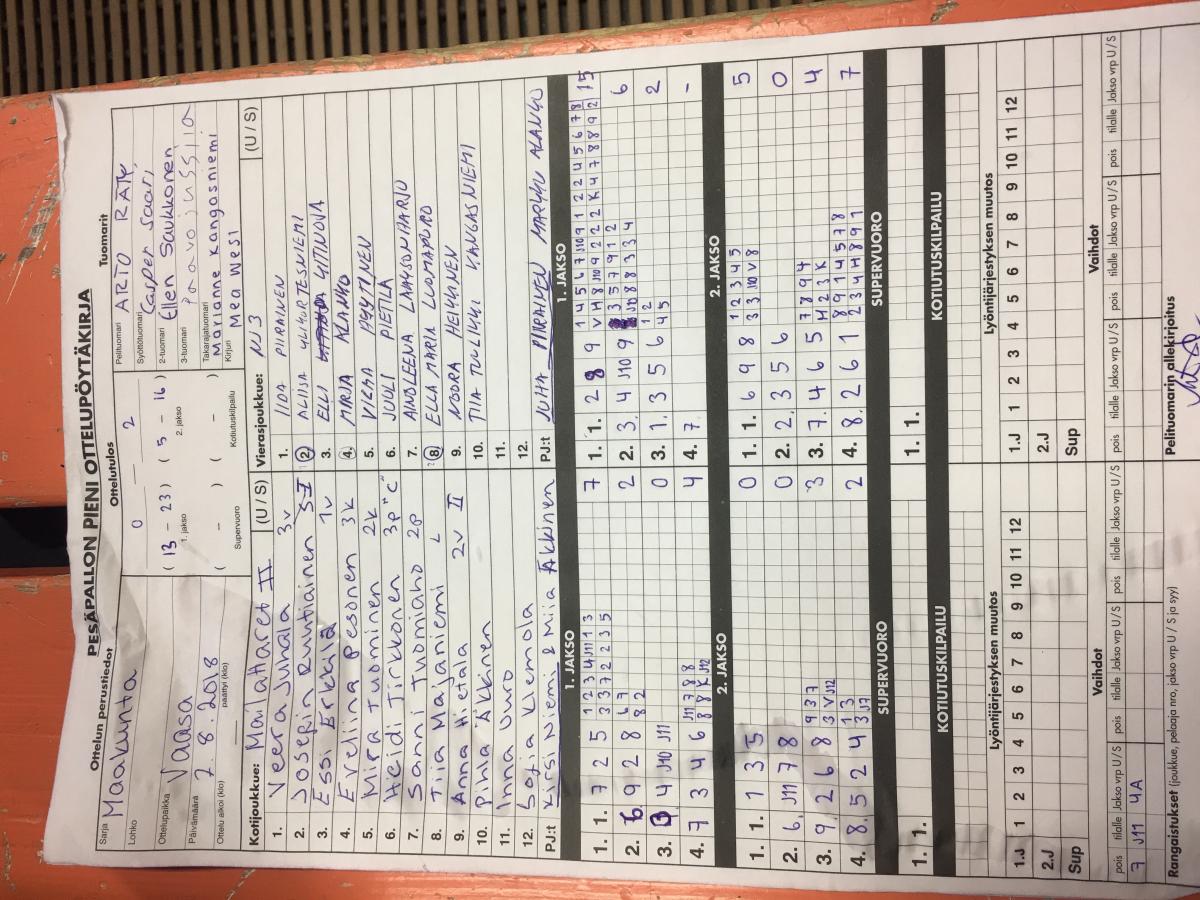 PESÄPALLON PIENI OTTELUPÖYTÄKIRJA
Ottelun perustiedot
Sarja Maakunta
Lohko
Ottelupaikka Vaasa
Päivämäärä 7.8.2018
Ottelu alkoi (klo) päättyi (klo)
Ottelutulos
0 2
( 13 - 23 ) ( 5 - 16 )
1. jakso 2. jakso
( - ) ( - )
Supervuoro Kotiutuskilpailu
Tuomarit
Pelituomari ARTO RÄTY
Syöttötuomari Casper Saari
2-tuomari Ellen Saukkonen
3-tuomari
Takarajatuomari Marianne Kangasniemi
Kirjuri Mea Wesi
Kotijoukkue: Mailattaret II (U / S)
1. Veera Juhala 3v
2. Josefin Ruutiainen
3. Essi Erkkilä 1v
4. Evelina Pesonen 3k
5. Mira Tuominen 2k
6. Heidi Jirkkonen 3p "C"
7. Sanni Juomiaho 2p
8. Tiia Maijaniemi L
9. Anna Hietala 2v II
10. Pihla Äkkinen
11. Inna Uuro
12. Sofia Klemola
PJ:t Kirsi Niemi & Miia Äkkinen
Vierasjoukkue: (U / S)
1. IIDA PIIRAINEN
2. ALIISA YLIHURTESNIEMI
3. ELLI UITINOVA
4. MARJA ALANKO
5. VILMA PYYTINEN
6. JUULI PIETILÄ
7. AINOLEENA LAAKSONHARJU
8. ELLA MARIA LUOMAPURO
9. NOORA HEIKKINEN
10. TIIA TUULIKKI KANGASNIEMI
11.
12.
PJ:t JUHA PIIRAINEN MARKKU ALANKO
1. JAKSO
1. 1. 7 2 5 1 2 3 4 J11 1 3 7
3 3 7 2 2 3 5
2. 6 9 2 8 6 7 2
8 2
3. 3 4 J10 J11 0
4. 7 3 4 6 J11 7 8 8 4
8 8 K J12
2. JAKSO
1. 1. 1 3 5 0
2. 6. J11 7 8 0
3. 9. 2 6 8 9 3 7 3
3 V J12
4. 8. 5 2 4 1 3 2
3 J7
SUPERVUORO
1. 1.
KOTIUTUSKILPAILU
1. JAKSO
1. 1. 2 8 9 1 4 5 6 7 J10 9 1 2 2 4 5 6 7 8 15
V H 8 J10 9 2 2 2 K 4 7 8 8 9 2
2. 3. 4 J10 9 3 5 7 9 1 2 6
J10 8 8 3 3 4
3. 1. 3 5 6 1 2 2
4 5
4. 7. -
2. JAKSO
1. 1. 6 9 8 1 2 3 4 5 5
3 3 J10 V 8
2. 2. 3 5 6 0
3. 7. 4 6 5 7 8 9 4 4
H 2 3 K
4. 8. 2 6 1 8 9 1 4 5 7 8 7
2 3 4 H 8 9 1
SUPERVUORO
1. 1.
KOTIUTUSKILPAILU
Lyöntijärjestyksen muutos
1.J 1 2 3 4 5 6 7 8 9 10 11 12
2.J
Sup
Vaihdot
pois tilalle Jakso vrp U / S pois tilalle Jakso vrp U / S pois tilalle Jakso vrp U / S
7 J11 4A
Lyöntijärjestyksen muutos
1.J 1 2 3 4 5 6 7 8 9 10 11 12
2.J
Sup
Vaihdot
pois tilalle Jakso vrp U / S pois tilalle Jakso vrp U / S pois tilalle Jakso vrp U / S
Rangaistukset (joukkue, pelaaja nro, jakso vrp U / S ja syy)
Pelituomarin allekirjoitus